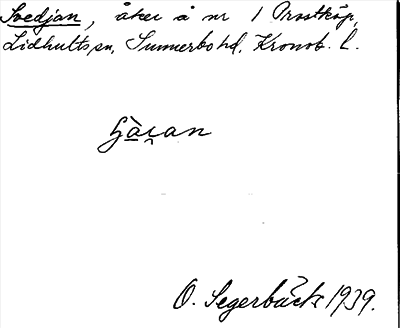 Svedjan, åker å nr 1 Prostköp,
Lidhults sn, Sunnerbo hd, Kronob. l.
O. Segerbäck 1939.